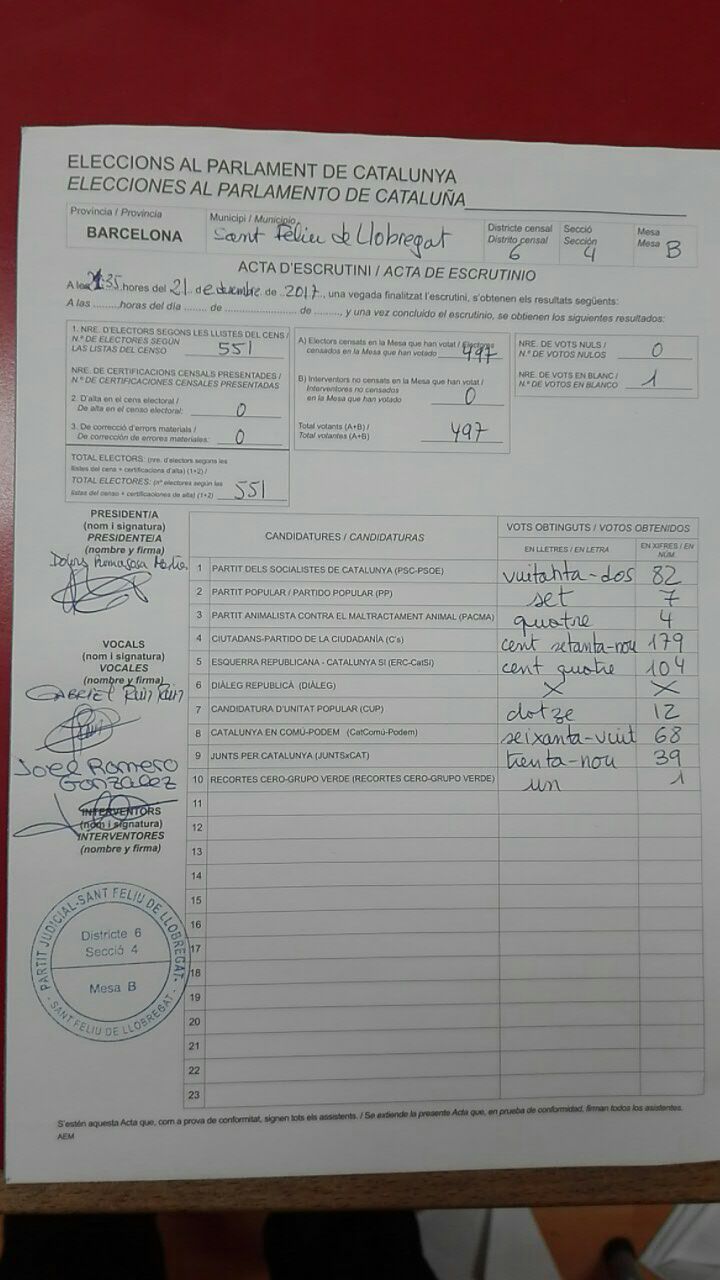 ELECCIONS AL PARLAMENT DE CATALUNYA
ELECCIONES AL PARLAMENTO DE CATALUÑA
Província / Provincia
BARCELONA
Municipi / Municipio
Sant Feliu de Llobregat
Districte censal
Distrito censal
6
Secció
Sección
4
Mesa
Mesa B
ACTA D'ESCRUTINI / ACTA DE ESCRUTINIO
A les 35 hores del 21 de desembre de 2017, una vegada finalitzat l'escrutini, s'obtenen els resultats següents:
A las .........horas del día ....... de ........................ de ........, y una vez concluido el escrutinio, se obtienen los siguientes resultados:
1. NRE. D'ELECTORS SEGONS LES LLISTES DEL CENS /
N.º DE ELECTORES SEGÚN
LAS LISTAS DEL CENSO 551
NRE. DE CERTIFICACIONS CENSALS PRESENTADES /
N.º DE CERTIFICACIONES CENSALES PRESENTADAS
2. D'alta en el cens electoral /
De alta en el censo electoral: 0
3. De correcció d'errors materials /
De corrección de errores materiales: 0
TOTAL ELECTORS: (nre. d'electors segons les
llistes del cens + certificacions d'alta) (1+2) /
TOTAL ELECTORES: (nº electores según las
listas del censo + certificaciones de alta) (1+2) 551
A) Electors censats en la Mesa que han votat / Electores
censados en la Mesa que han votado 497
B) Interventors no censats en la Mesa que han votat /
Interventores no censados
en la Mesa que han votado 0
Total votants (A+B) /
Total votantes (A+B) 497
NRE. DE VOTS NULS /
N.º DE VOTOS NULOS 0
NRE. DE VOTS EN BLANC /
N.º DE VOTOS EN BLANCO 1
PRESIDENT/A
(nom i signatura)
PRESIDENTE/A
(nombre y firma)
VOCALS
(nom i signatura)
VOCALES
(nombre y firma)
GABRIEL
Joel Romero
Gonzalez
INTERVENTORS
(nom i signatura)
INTERVENTORES
(nombre y firma)
PARTIT JUDICIAL-SANT FELIU DE LLOBREGAT-
Districte 6
Secció 4
Mesa B
- SANT FELIU DE LLOBREGAT -
CANDIDATURES / CANDIDATURAS
VOTS OBTINGUTS / VOTOS OBTENIDOS
EN LLETRES / EN LETRA
EN XIFRES / EN NÚM.
1 PARTIT DELS SOCIALISTES DE CATALUNYA (PSC-PSOE) vuitanta-dos 82
2 PARTIT POPULAR / PARTIDO POPULAR (PP) set 7
3 PARTIT ANIMALISTA CONTRA EL MALTRACTAMENT ANIMAL (PACMA) quatre 4
4 CIUTADANS-PARTIDO DE LA CIUDADANÍA (C's) cent setanta-nou 179
5 ESQUERRA REPUBLICANA - CATALUNYA SI (ERC-CatSí) cent quatre 104
6 DIÀLEG REPUBLICÀ (DIÀLEG) X X
7 CANDIDATURA D'UNITAT POPULAR (CUP) dotze 12
8 CATALUNYA EN COMÚ-PODEM (CatComú-Podem) seixanta-vuit 68
9 JUNTS PER CATALUNYA (JUNTSxCAT) trenta-nou 39
10 RECORTES CERO-GRUPO VERDE (RECORTES CERO-GRUPO VERDE) un 1
11
12
13
14
15
16
17
18
19
20
21
22
23
S'estén aquesta Acta que, com a prova de conformitat, signen tots els assistents. / Se extiende la presente Acta que, en prueba de conformidad, firman todos los asistentes.
AEM